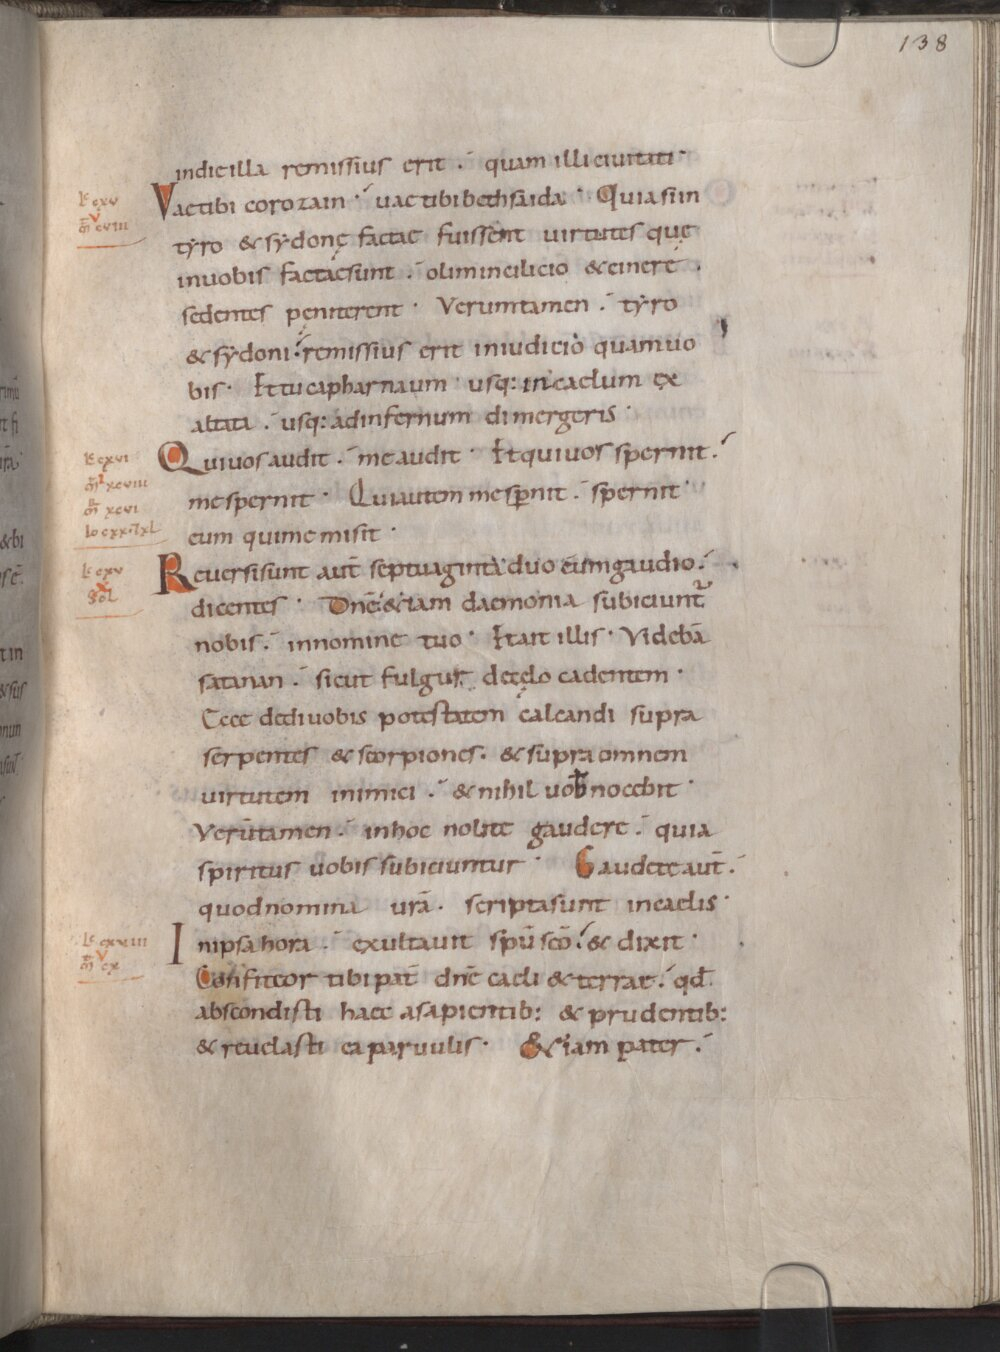 138
in die illa remissius erit . quam illi ciuitati .
Vae tibi corozain . uae tibi bethsaida . Quia si in
tyro & sydonę factae fuissent uirtutes quę
in uobis factae sunt . olim in cilicio & cinere .
sedentes peniterent . Verumtamen . tyro
& sydoni . remissius erit in iudicio quam uo
bis . Et tu capharnaum usq: in caelum ex
altata . usq: ad infernum dimergeris .
Qui uos audit . me audit . Et qui uos spernit .
me spernit . Qui autem me sp̄nit . spernit
eum qui me misit .
Reuersi sunt aut̄ septuaginta duo cum gaudio .
dicentes . Dn̄e &iam daemonia subiciunt̄
nobis . in nomine tuo . Et ait illis . Videbā
satanan . sicut fulgur de cęlo cadentem .
Ecce dedi uobis potestatem calcandi supra
serpentes & scorpiones . & supra omnem
uirtutem inimici . & nihil uob̄ nocebit .
Verūtamen . in hoc nolite gaudere . quia
spiritus uobis subiciuntur . Gaudete aut̄ .
quod nomina urā . scripta sunt in caelis .
In ipsa hora . exultauit spū scō . & dixit .
Confiteor tibi pat̄ dn̄e caeli & terrae . qđ
abscondisti haec a sapientib: & prudentib:
& reuelasti ea paruulis . &iam pater .
lc cxv
m̄t cviii
lc cxvi
m̄t xcviii
m̄r xcvi
lc cxv
sol